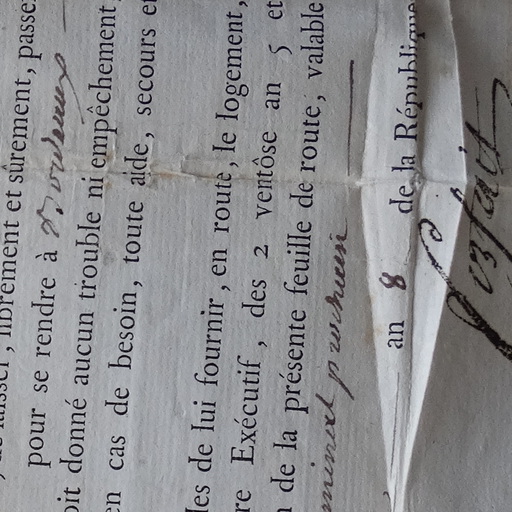 librement et sûrement, passer
pour se rendre à Bordeaux
oit donné aucun trouble ni empêchement,
en cas de besoin, toute aide, secours et
les de lui fournir, en route, le logement,
re Exécutif, des 2 ventôse an 5 et
de la présente feuille de route, valable
minal prochain
an 8 de la République